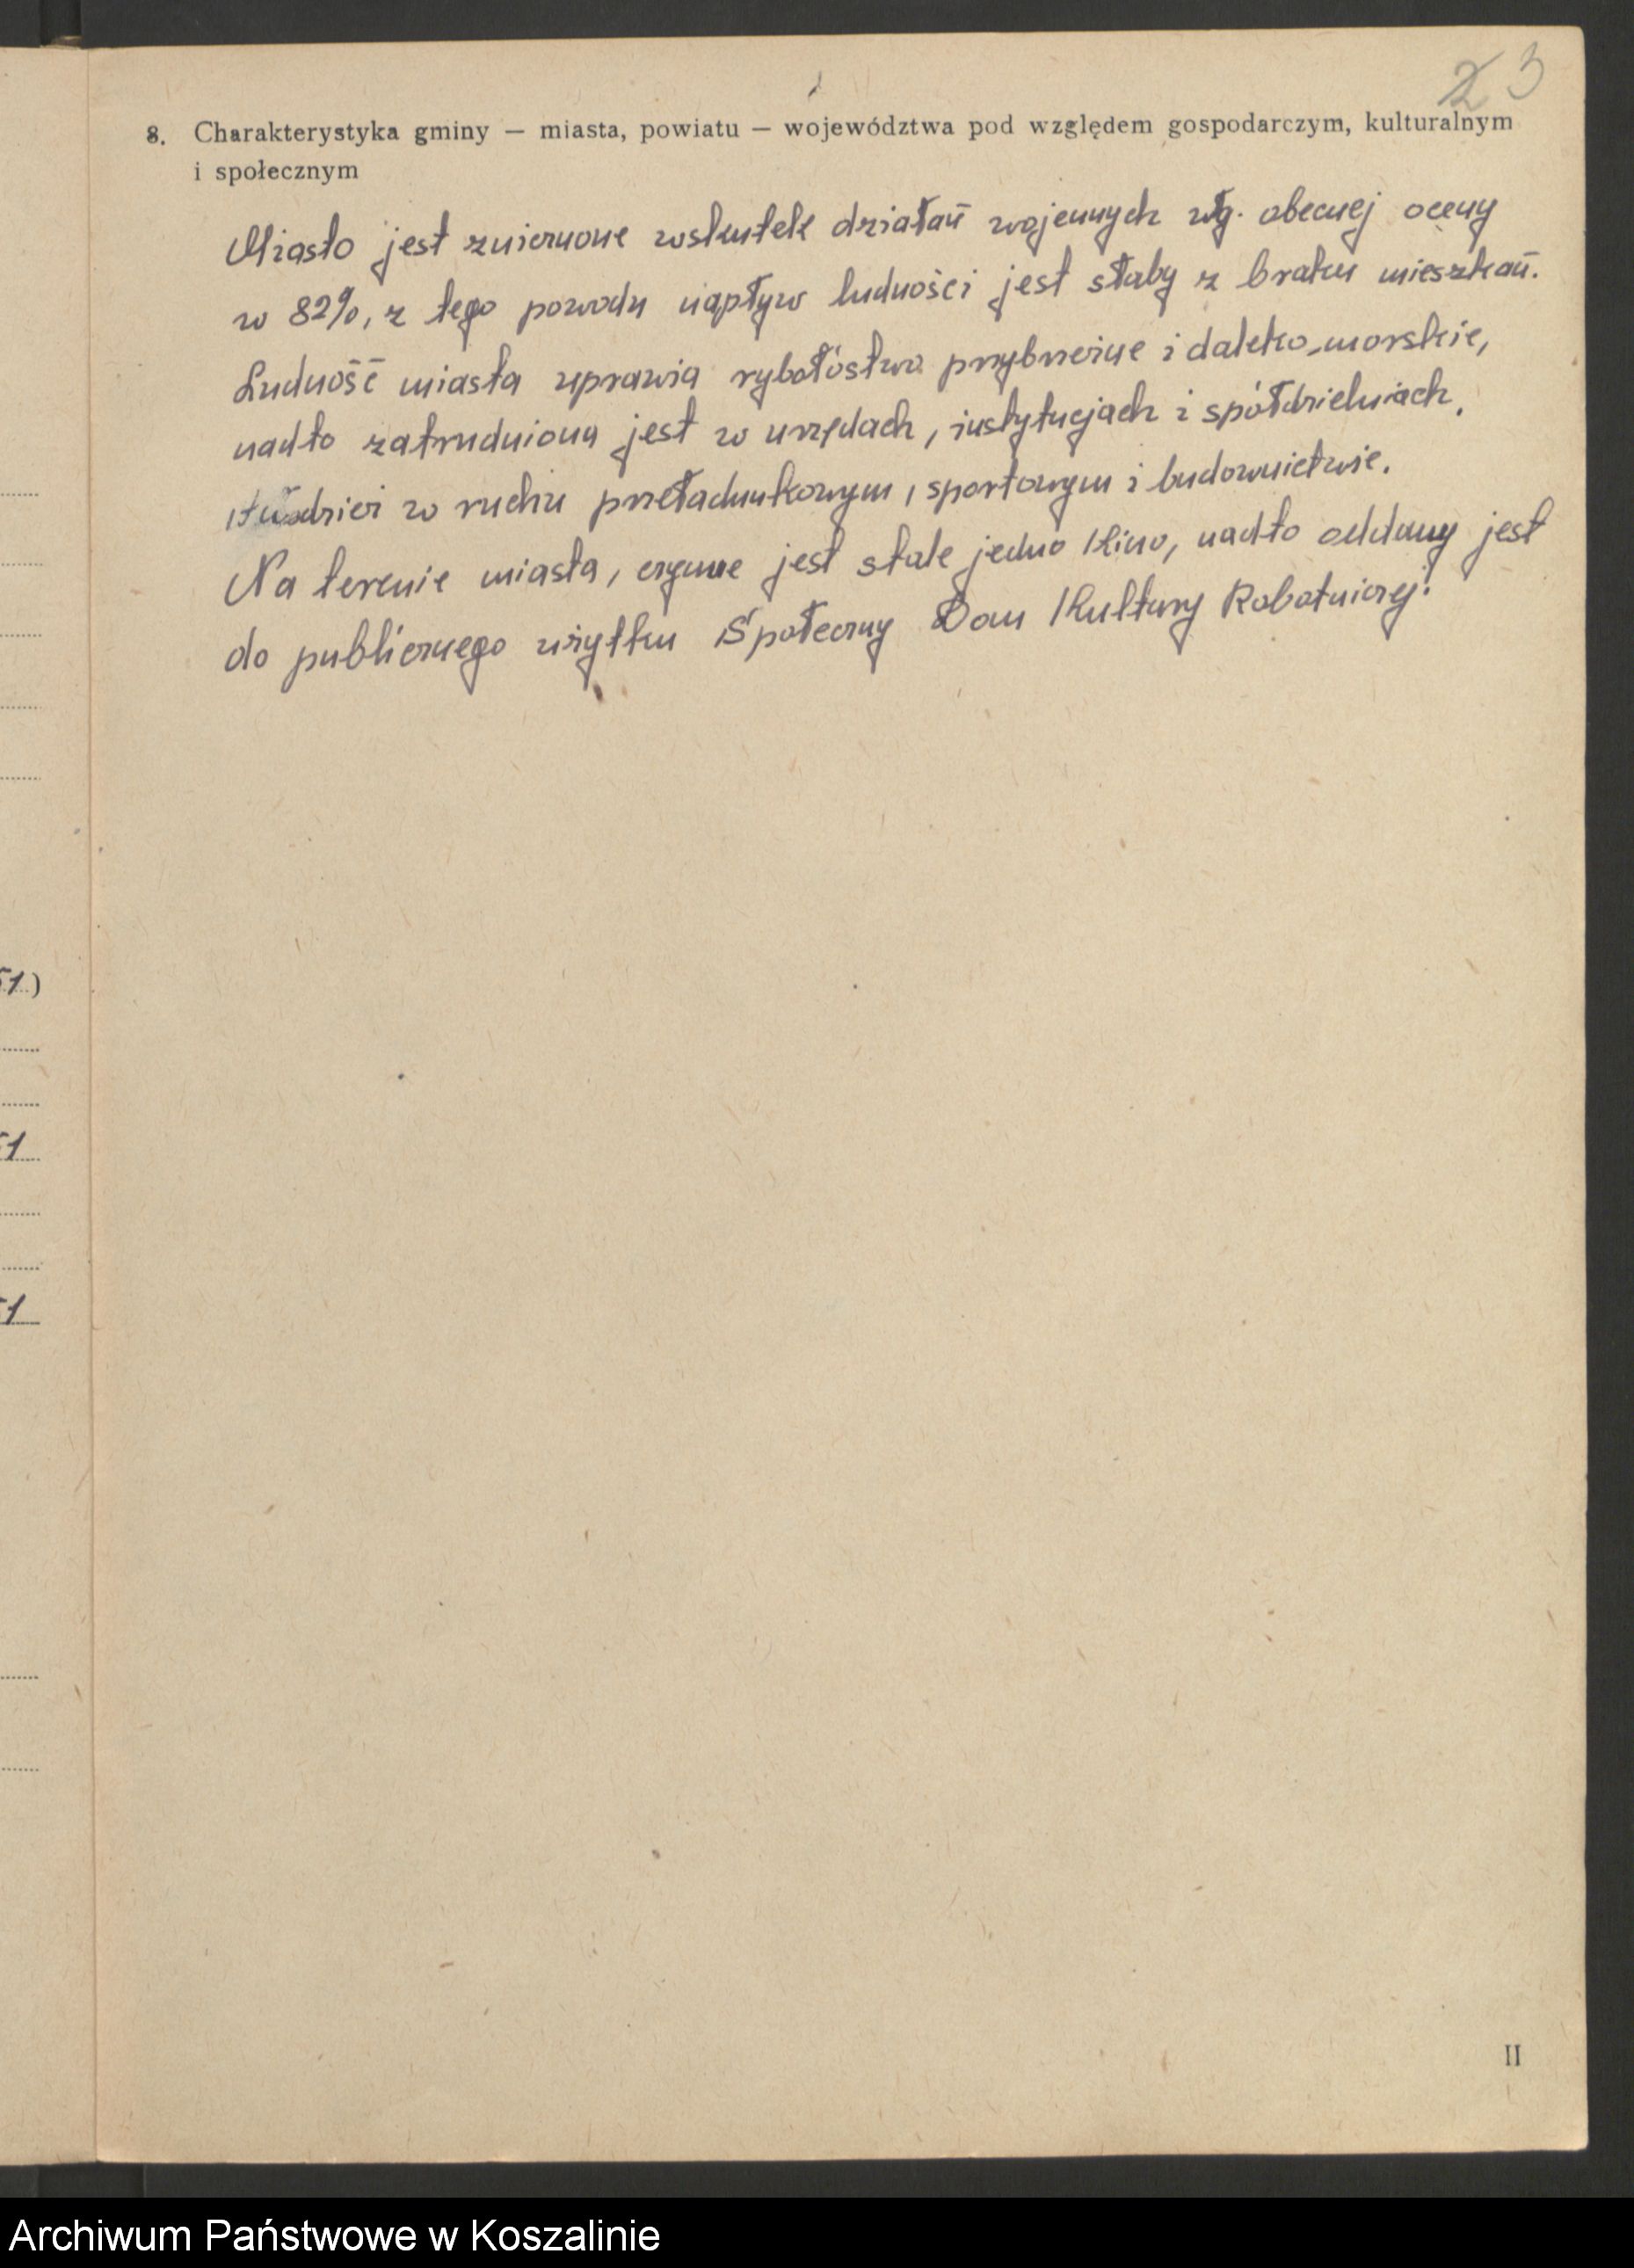 2 3
8. Charakterystyka gminy — miasta, powiatu — województwa pod względem gospodarczym, kulturalnym
i społecznym
Miasto jest zniszczone wskutek działań wojennych wg. obecnej oceny
w 82%, z tego powodu napływ ludności jest słaby z braku mieszkań.
Ludność miasta uprawia rybołóstwo przybrzeżne i daleko-morskie,
nadto zatrudniona jest w urzędach, instytucjach i spółdzielniach,
w ruchu przeładunkowym, sportowym i budownictwie.
Na terenie miasta, czynne jest stale jedno Kino, nadto oddany jest
do publicznego użytku Społeczny Dom Kultury Robotniczej.
51)
51
51
II
Archiwum Państwowe w Koszalinie